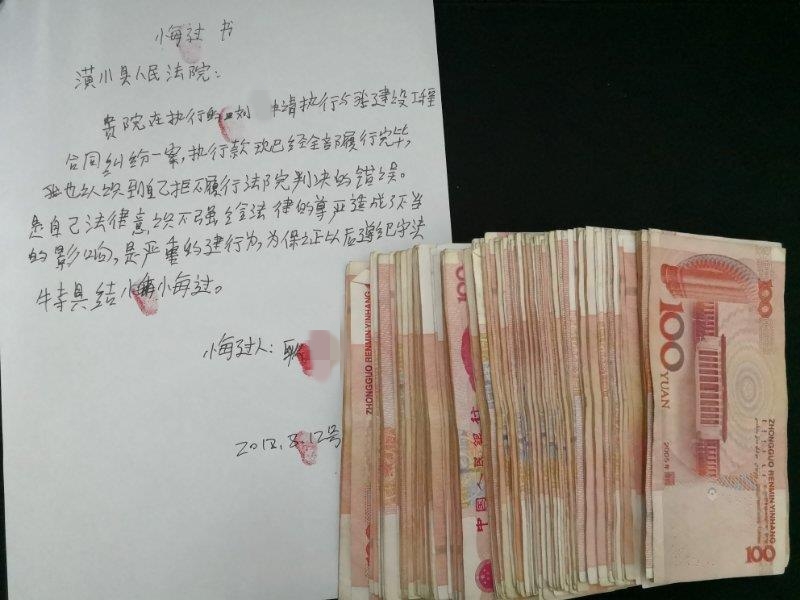 悔过书
潢川县人民法院：
贵院在执行的刘 申请执行与我建设工程
合同纠纷一案，执行款现已经全部履行完毕，
我也认识到自己拒不履行法院判决的错误。
是自己法律意识不强给法律的尊严造成了不当
的影响，是严重的违行为，为保证以后遵纪守法
特具结悔悔过。
悔过人：耿
2018.8.12号
ZHONGGUO RENMIN YINHANG
100
中国人民银行
100
100 YUAN
ZHONGGUO RENMIN YINHANG
2005年
100